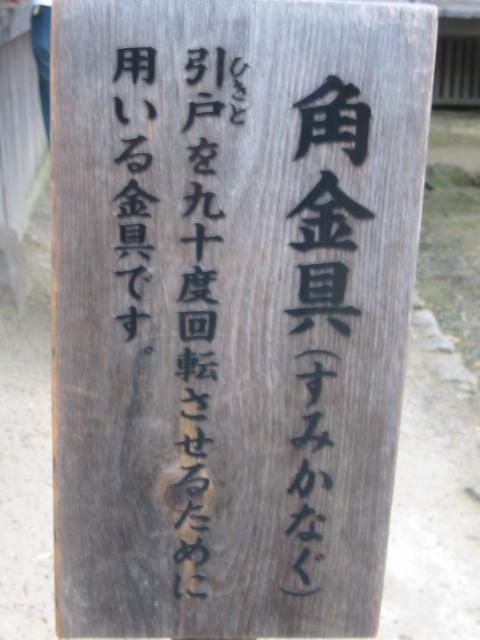 角金具(すみかなぐ)
ひきと
引戸を九十度回転させるために
用いる金具です。